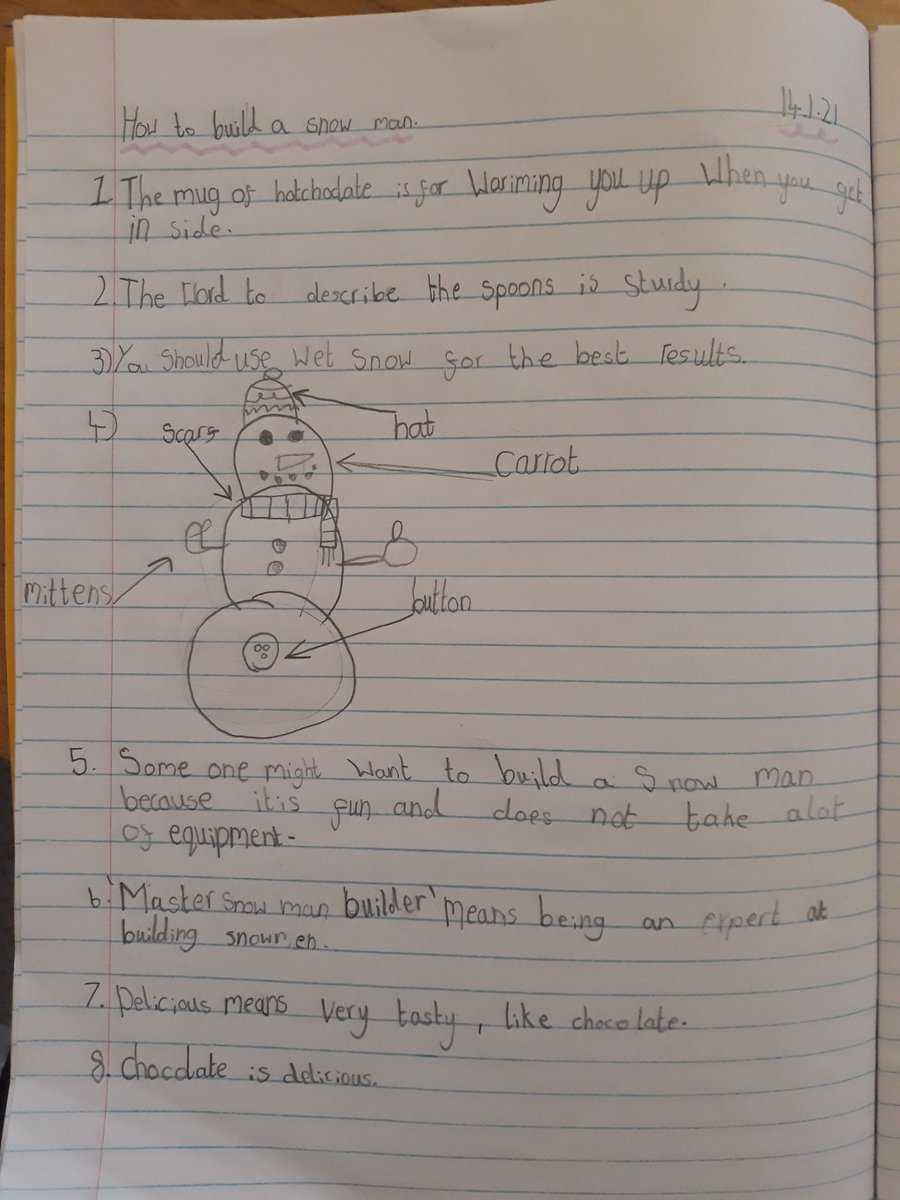 How to build a snow man.
14.1.21
1 The mug of hotchodate is for Wariming you up When you get
in side.
2. The Word to describe the spoons is sturdy.
3) You should use wet snow for the best results.
4)
scarf
hat
carrot
mittens
button
5. Some one might want to build a snow man
because it is fun and does not take alot
of equipment.
6. 'Master snow man builder' means being an expert at
building snowmen.
7. Delicious means very tasty, like chocolate.
8. chocolate is delicious.